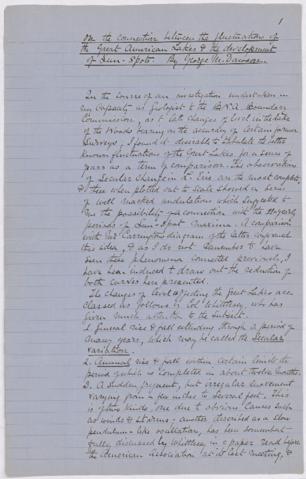 1
On the connection between the fluctuations of
the Great American Lakes & the development
of Sun-Spots. By George M. Dawson.
In the course of an investigation undertaken in
my capacity as Geologist to the B.N.A. Boundary
Commission, as to late changes of level in the Lake
of the Woods bearing on the accuracy of certain former
Surveys, I found it desirable to tabulate the better
known fluctuations of the Great Lakes for a series of
years as a term of comparison. The observations
of Secular change in L. Erie are the most complete,
& these when plotted out to scale showed a series
of well marked undulations which suggested to
me the possibility of a connection with the 11 years
periods of Sun-Spot maxima. A comparison
with Mr Carrington's diagram of the latter confirmed
this idea, & as I do not remember to have
seen these phenomena connected previously, I
have been induced to draw out the reduction of
both curves here presented.
The changes of level affecting the great Lakes are
classed as follows by Col Whittlesey, who has
given much attention to the subject.
1. General rise & fall extending through a period of
many years, which may be called the Secular
variation.
2. Annual rise & fall within certain limits the
period of which is completed in about twelve months.
3. A sudden, frequent, but irregular movement
varying from a few inches to several feet. This
is of two kinds, one due to obvious causes such
as winds & storms; another described as a slow
pendulum-like oscillation, has been somewhat
fully discussed by Whittlesey in a paper read before
the American Association at its last meeting, &